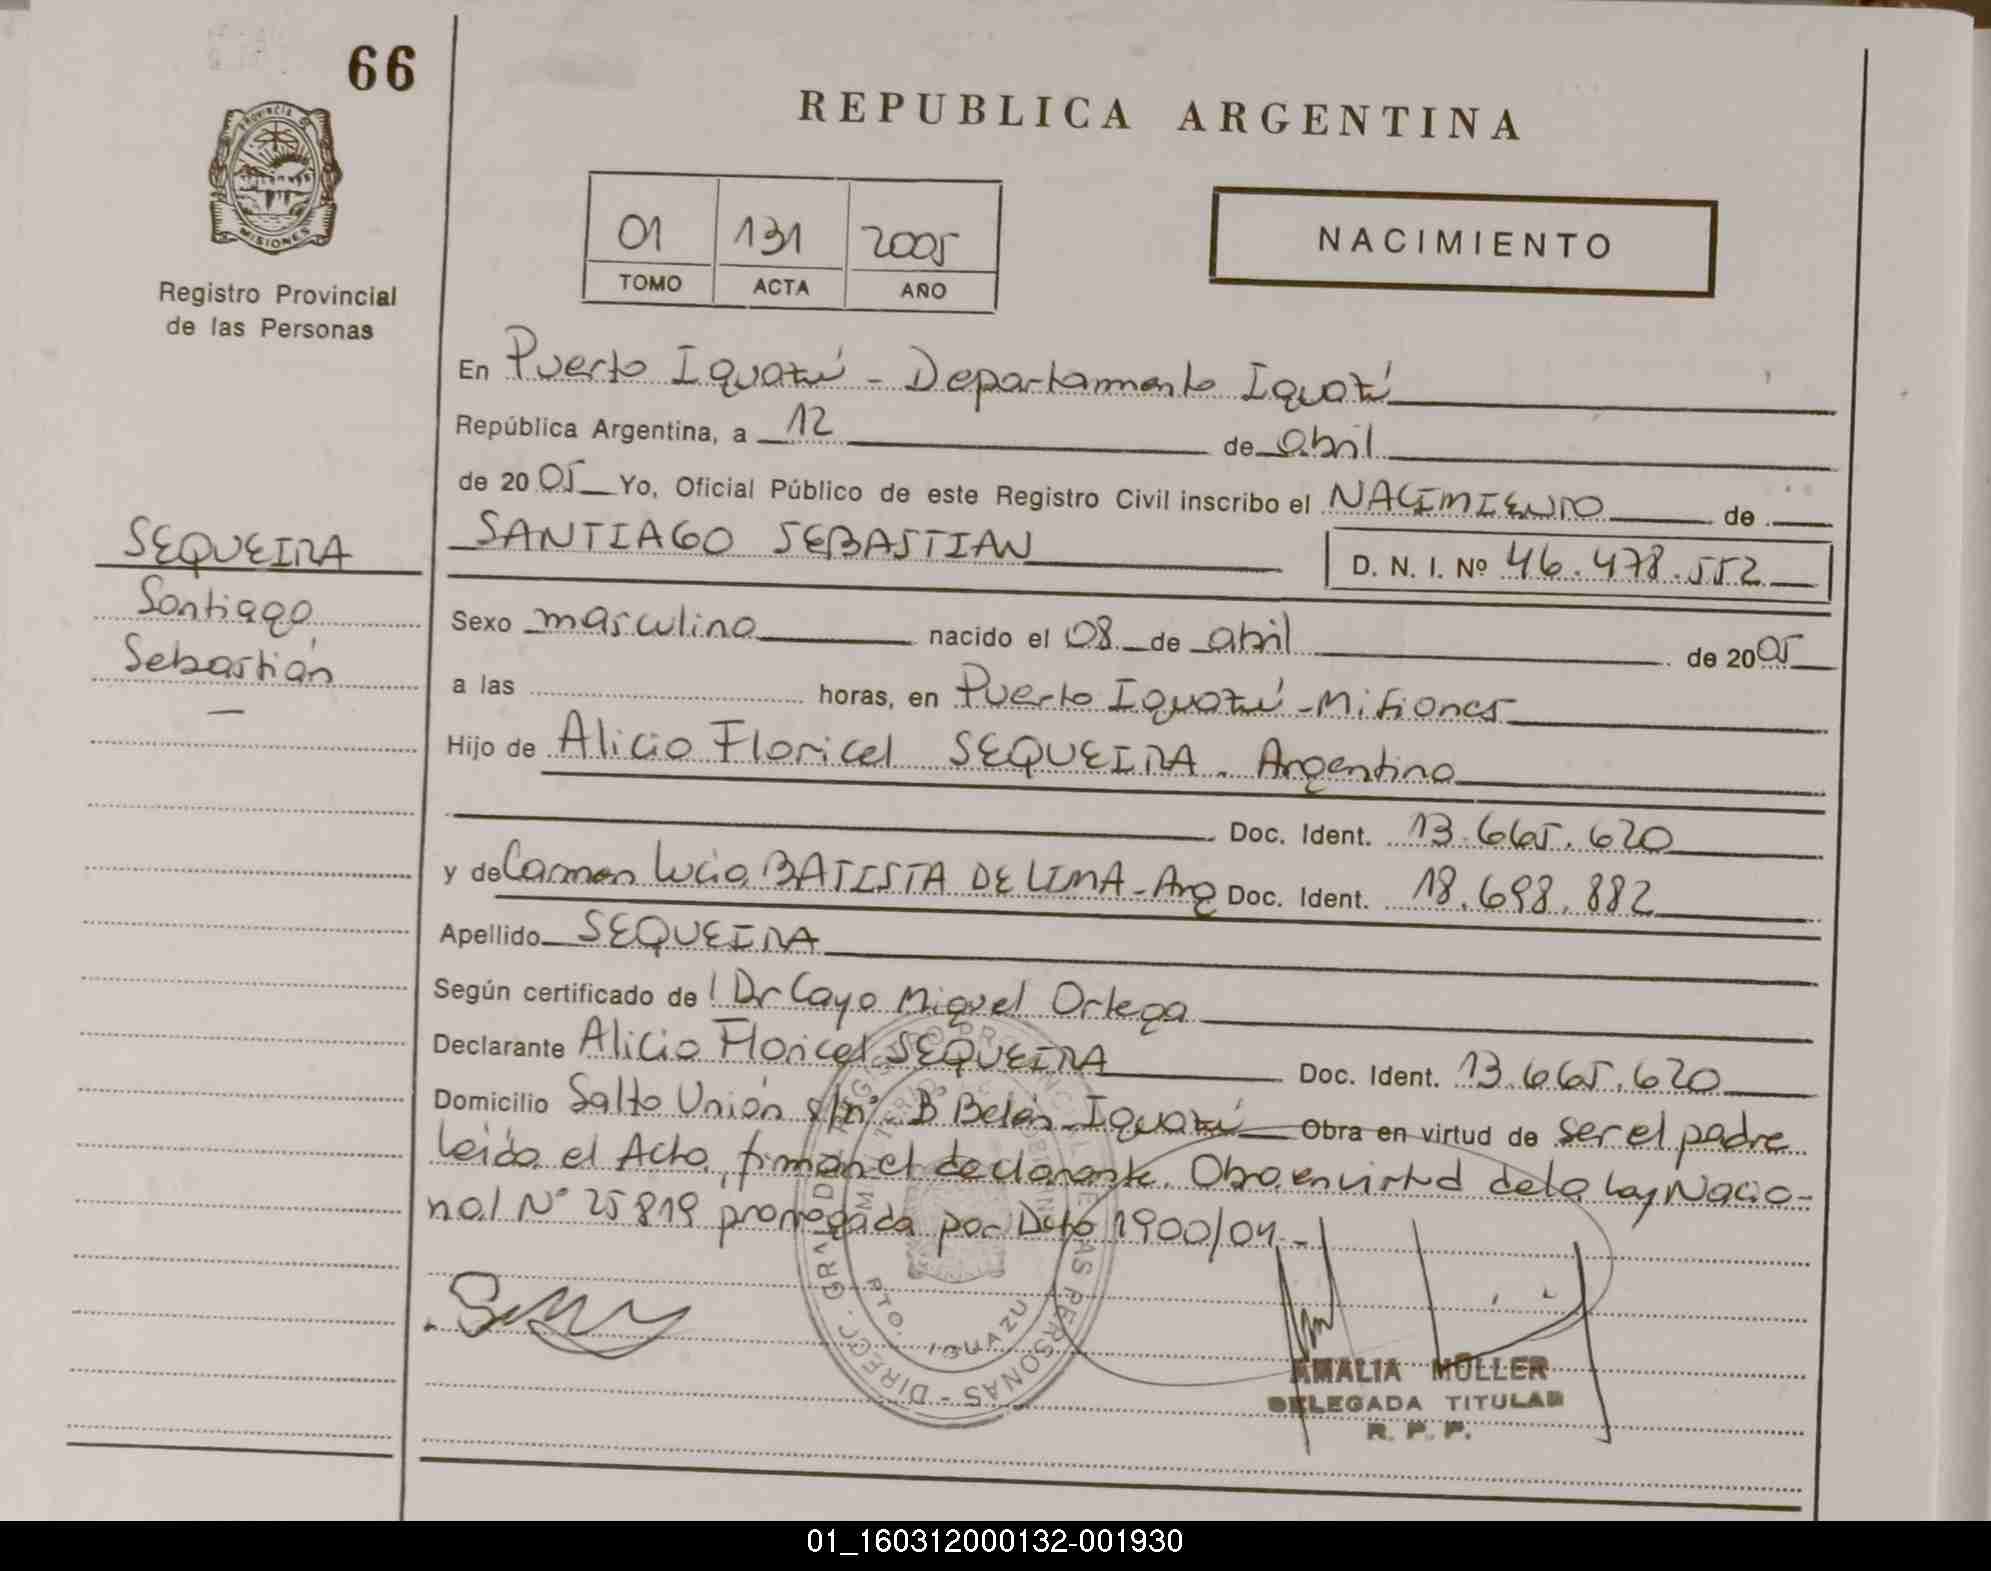 66
PROVINCIA DE
MISIONES
Registro Provincial
de las Personas
REPUBLICA ARGENTINA
01 131 2005
TOMO ACTA AÑO
NACIMIENTO
En Puerto Iguazú - Departamento Iguazú
República Argentina, a 12 de abril
de 2005 Yo, Oficial Público de este Registro Civil inscribo el NACIMIENTO de
SANTIAGO SEBASTIAN
D. N. I. Nº 46.478.552
SEQUEIRA
Santiago
Sebastián
Sexo masculino nacido el 08 de abril de 2005
a las horas, en Puerto Iguazú - Misiones
Hijo de Alicio Floricel SEQUEIRA. Argentino
Doc. Ident. 13.665.620
y de Carmen Lucia BATISTA DE LIMA - Arg Doc. Ident. 18.698.882
Apellido SEQUEIRA
Según certificado de l Dr Cayo Miguel Ortega
Declarante Alicio Floricel SEQUEIRA Doc. Ident. 13.665.620
Domicilio Salto Unión s/nº B Belén Iguazú Obra en virtud de ser el padre
leida el Acta, firman el declarante. Obra en virtud de la Ley Nacio-
nal Nº 25819 prorrogada por Dcto 1900/04.-
PTO. IGUAZU
AMALIA MÜLLER
DELEGADA TITULAR
R. P. P.
01_160312000132-001930